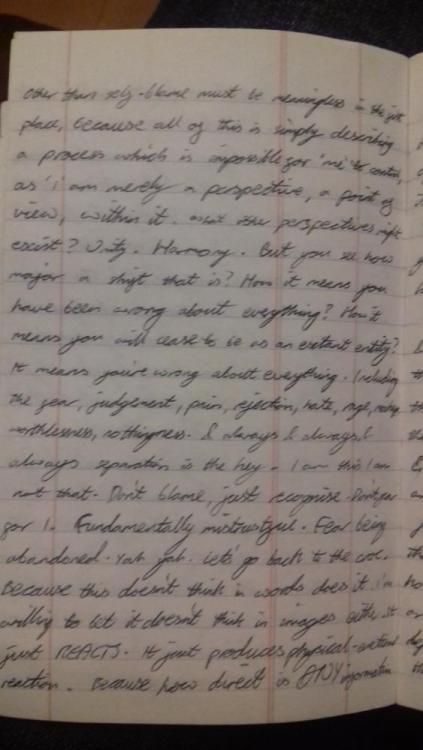 other than self-blame must be meaningless in the first
place, because all of this is simply describing
a process which is impossible for 'me' to control,
as 'I' am merely a perspective, a point of
view, within it. What other perspectives might
exist? Unity. Harmony. But you see how
major a shift that is? How it means you
have been wrong about everything? How it
means you will cease to be as an extant entity?
It means you're wrong about everything. Including
the fear, judgement, pain, rejection, hate, rage,
worthlessness, nothingness. I always I always I
always separation is the key. I am this I am
not that. Don't blame, just recognise. Don't
for 1. Fundamentally mistrustful. Fear being
abandoned. Yah yah. Let's go back to the
Because this doesn't think in words does it. I'm
willing to bet it doesn't think in images either. It
just REACTS. It just produces physical-
reaction. Because how direct is ANY information